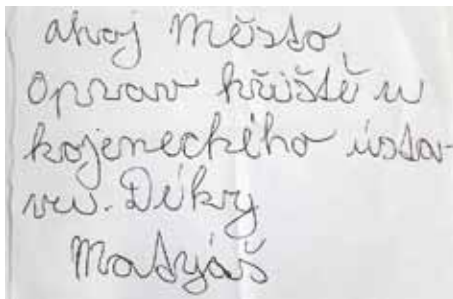 ahoj Město
Oprav hřiště u
kojeneckého ústa-
vu. Díky
Matyáš